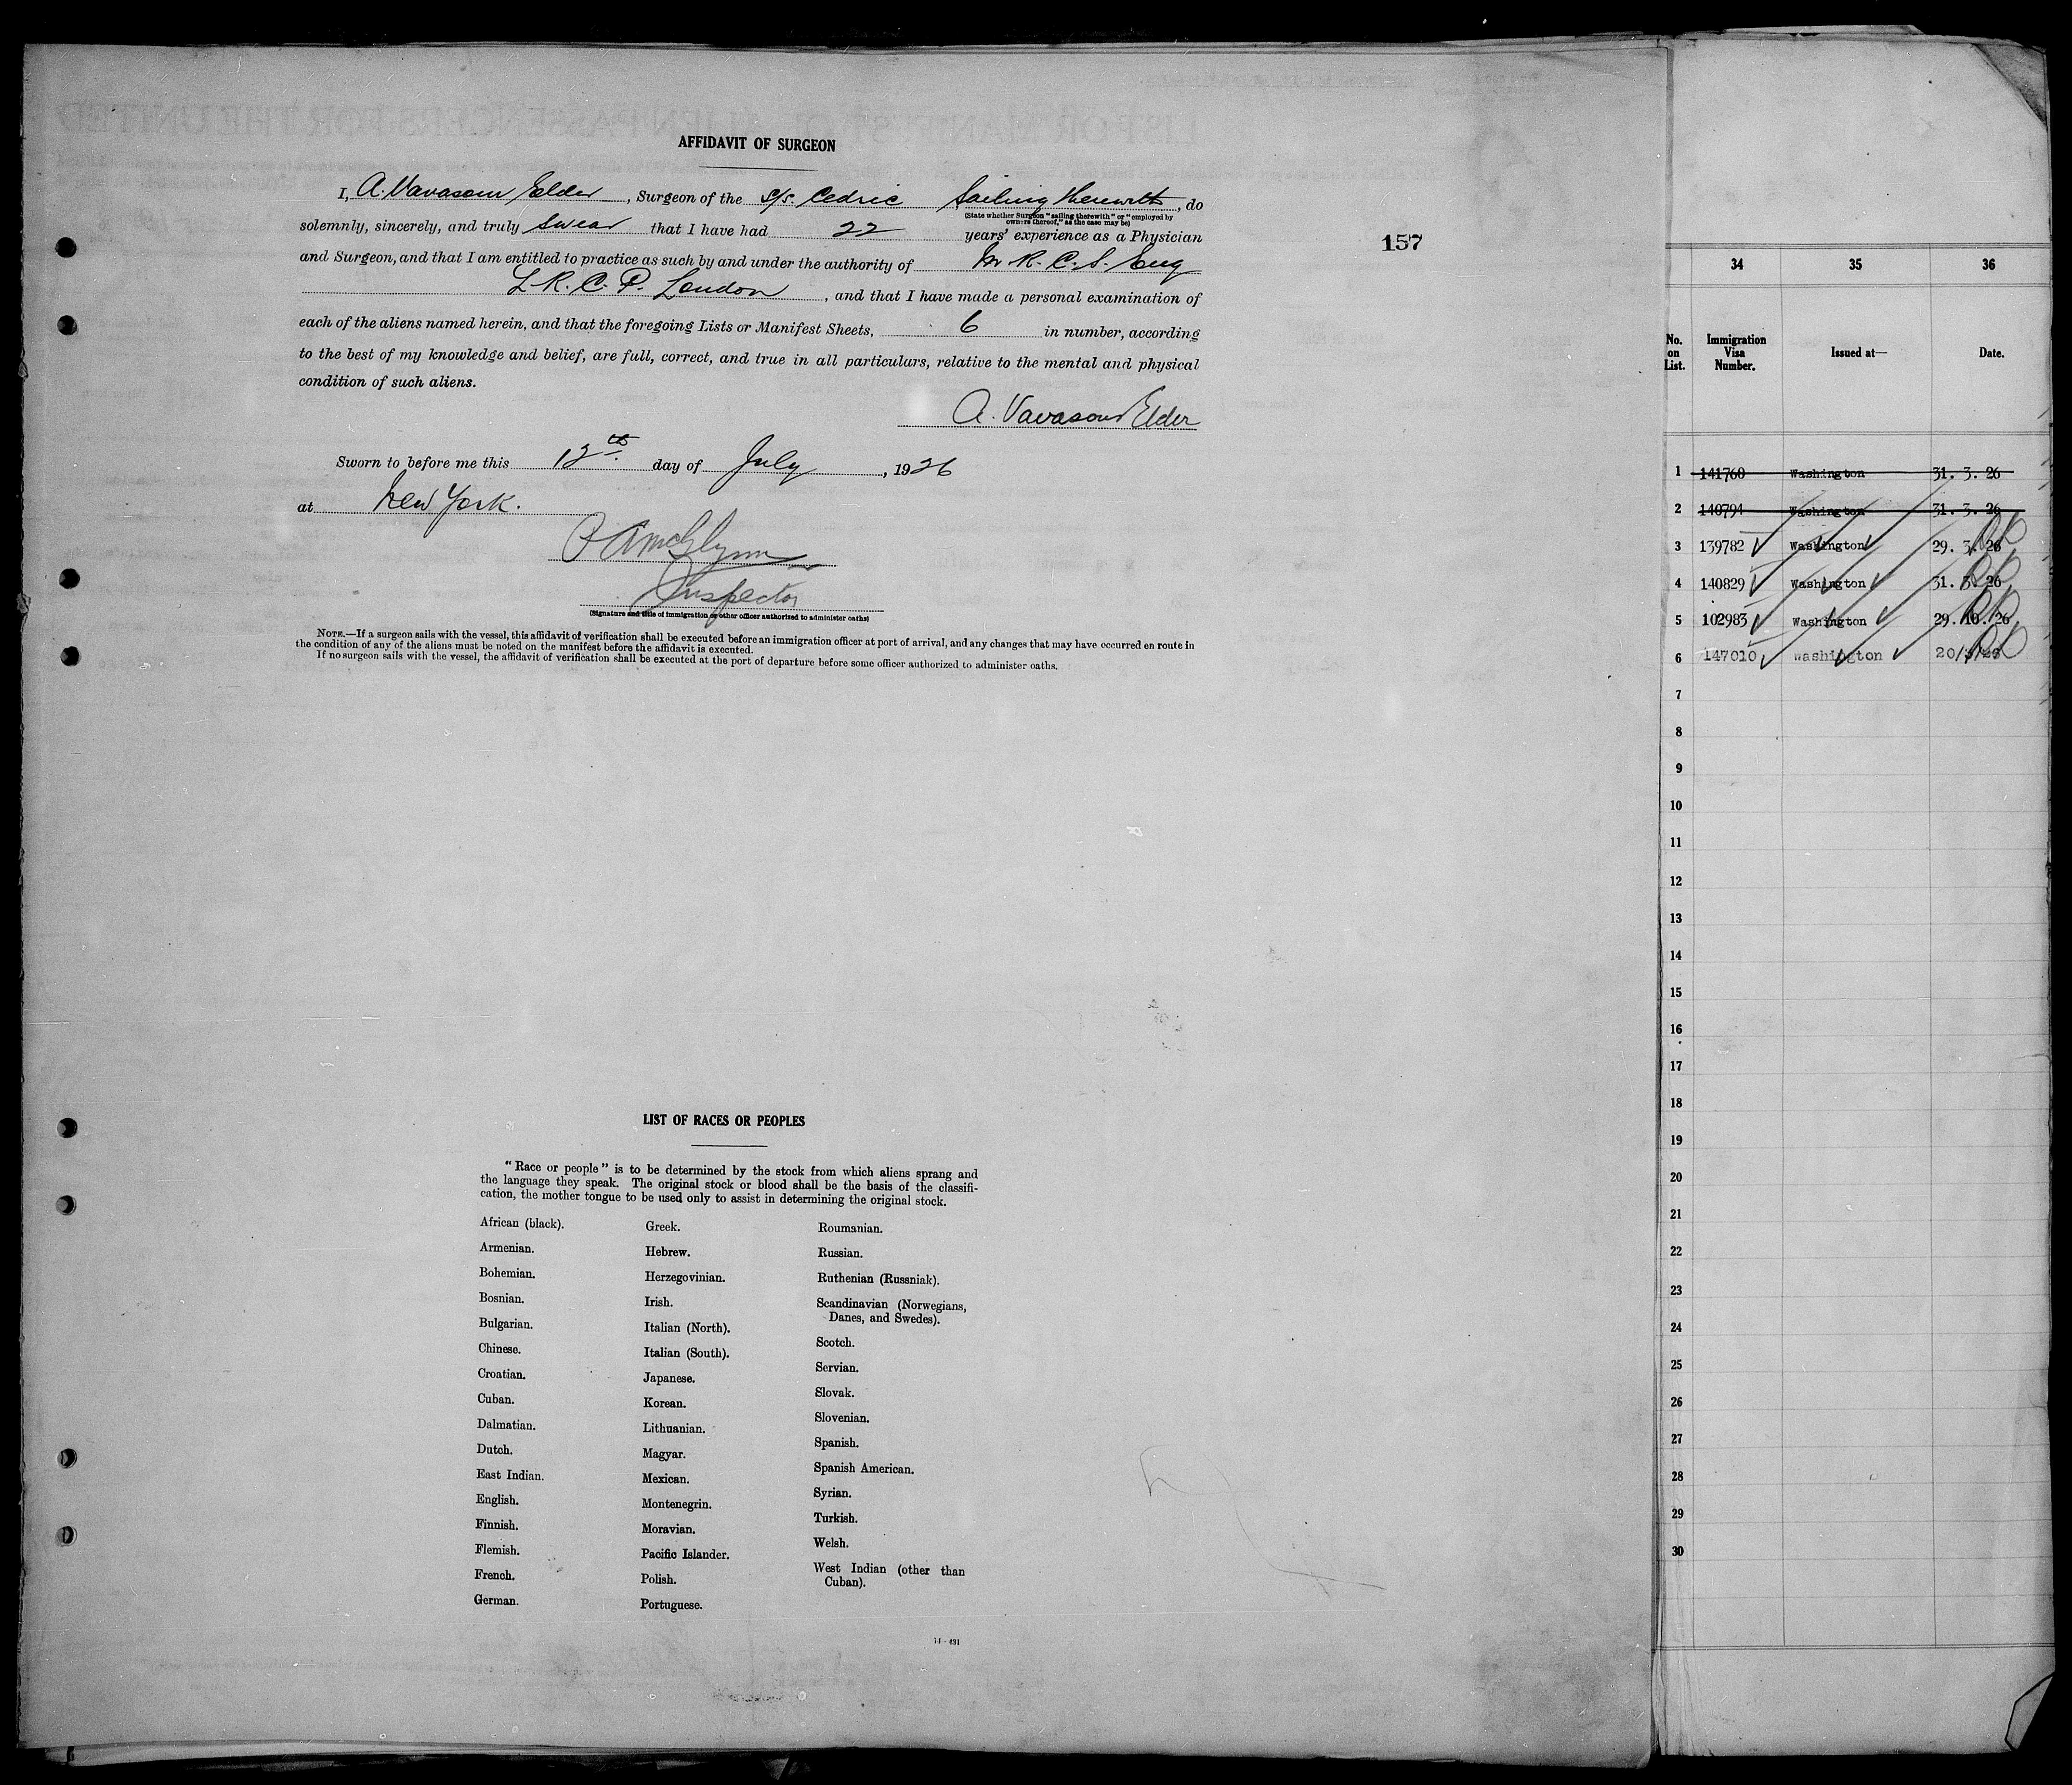 AFFIDAVIT OF SURGEON
I, A. Vavasour Elder, Surgeon of the S/S. Cedric Sailing Therewith, do
(State whether Surgeon "sailing therewith" or "employed by
owners thereof," as the case may be)
solemnly, sincerely, and truly swear that I have had 22 years' experience as a Physician
and Surgeon, and that I am entitled to practice as such by and under the authority of M. R. C. S. Eng
L. R. C. P. London, and that I have made a personal examination of
each of the aliens named herein, and that the foregoing Lists or Manifest Sheets, 6 in number, according
to the best of my knowledge and belief, are full, correct, and true in all particulars, relative to the mental and physical
condition of such aliens.
A. Vavasour Elder
Sworn to before me this 12th day of July, 1926
at New York.
P A McGlynn
Inspector
(Signature and title of immigration or other officer authorized to administer oaths)
NOTE.—If a surgeon sails with the vessel, this affidavit of verification shall be executed before an immigration officer at port of arrival, and any changes that may have occurred en route in
the condition of any of the aliens must be noted on the manifest before the affidavit is executed.
If no surgeon sails with the vessel, the affidavit of verification shall be executed at the port of departure before some officer authorized to administer oaths.
157
LIST OF RACES OR PEOPLES
"Race or people" is to be determined by the stock from which aliens sprang and
the language they speak. The original stock or blood shall be the basis of the classifi-
cation, the mother tongue to be used only to assist in determining the original stock.
African (black).
Armenian.
Bohemian.
Bosnian.
Bulgarian.
Chinese.
Croatian.
Cuban.
Dalmatian.
Dutch.
East Indian.
English.
Finnish.
Flemish.
French.
German.
Greek.
Hebrew.
Herzegovinian.
Irish.
Italian (North).
Italian (South).
Japanese.
Korean.
Lithuanian.
Magyar.
Mexican.
Montenegrin.
Moravian.
Pacific Islander.
Polish.
Portuguese.
Roumanian.
Russian.
Ruthenian (Russniak).
Scandinavian (Norwegians,
Danes, and Swedes).
Scotch.
Servian.
Slovak.
Slovenian.
Spanish.
Spanish American.
Syrian.
Turkish.
Welsh.
West Indian (other than
Cuban).
34 35 36
No. on List. Immigration Visa Number. Issued at— Date.
1 141760 Washington 31. 3. 26
2 140794 Washington 31. 3. 26
3 139782 Washington 29. 3. 26
4 140829 Washington 31. 3. 26
5 102983 Washington 29. 10. 26
6 147010 Washington
7
8
9
10
11
12
13
14
15
16
17
18
19
20
21
22
23
24
25
26
27
28
29
30